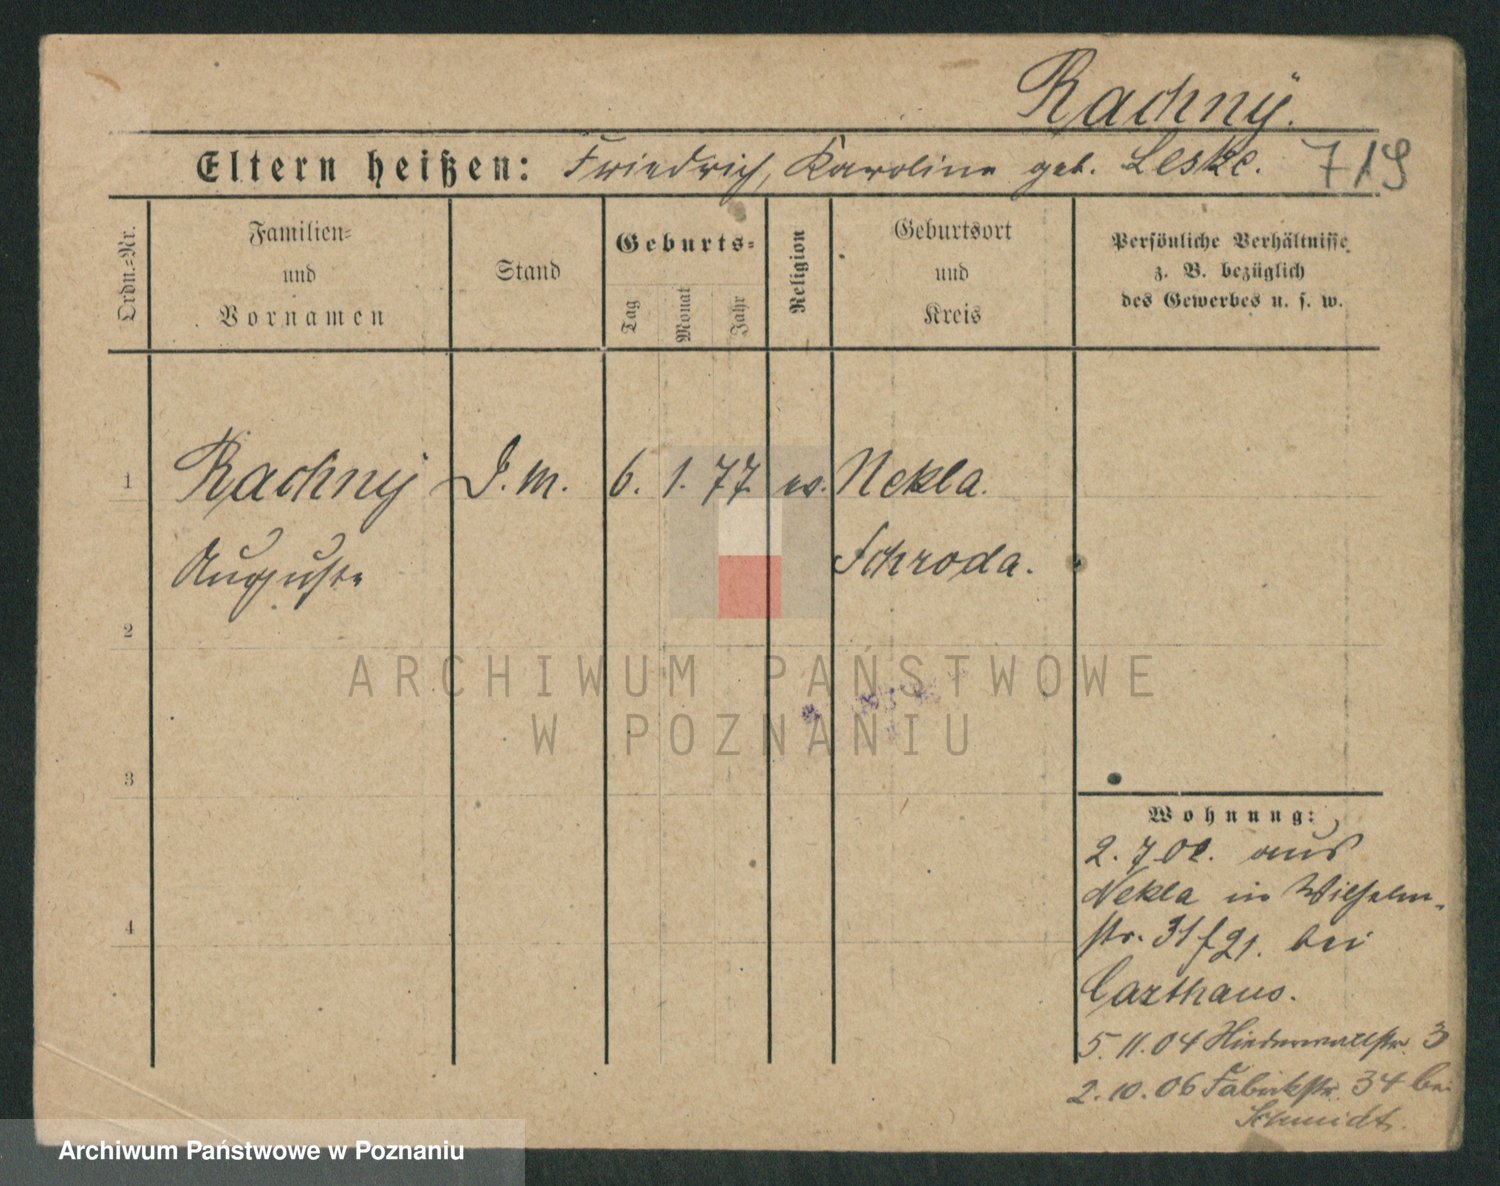 Rachnÿ.
Eltern heißen: Friedrich, Karoline geb. Leske. 719
Ordn.=Nr.
Familien=
und
Vornamen
Stand
Geburts=
Tag
Monat
Jahr
Religion
Geburtsort
und
Kreis
Persönliche Verhältnisse
z. B. bezüglich
des Gewerbes u. s. w.
1 Rachnÿ D. M. 6. 1. 77 ev. Nekla.
Auguste Schroda.
2
3
4
Wohnung:
2. 7. 02. aus
Nekla in Wilhelm-
str. 31 f 21. bei
Carthaus.
5. 11. 04 Niederwallstr. 3
2. 10. 06 Fabrikstr. 34 bei
Schmidt.
ARCHIWUM PAŃSTWOWE
W POZNANIU
Archiwum Państwowe w Poznaniu